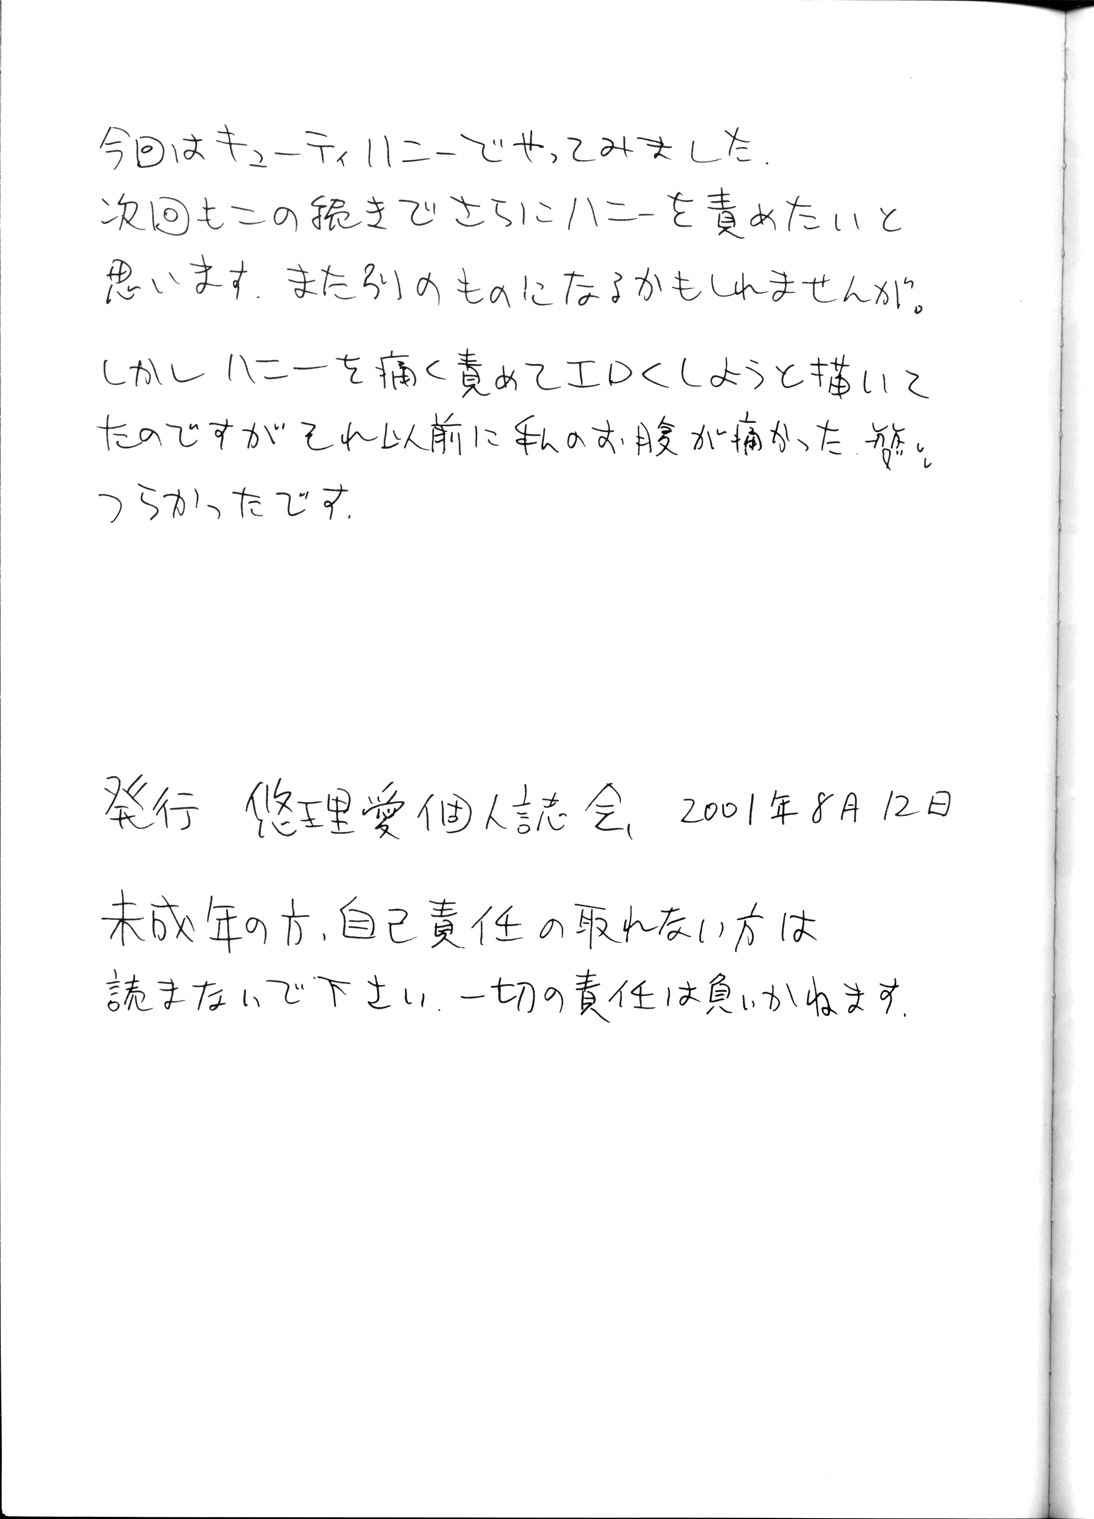 今回はキューティハニーでやってみました.
次回もこの続きでさらにハニーを責めたいと
思います. また別のものになるかもしれませんが。
しかしハニーを痛く責めてエロくしようと描いて
たのですがそれ以前に私のお腹が痛かった.
つらかったです.
発行 悠理愛個人誌会, 2001年8月12日
未成年の方、自己責任の取れない方は
読まないで下さい. 一切の責任は負いかねます.